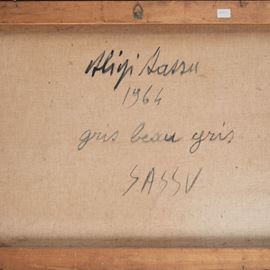 Aligi Sassu
1964
gris beau gris
SASSU